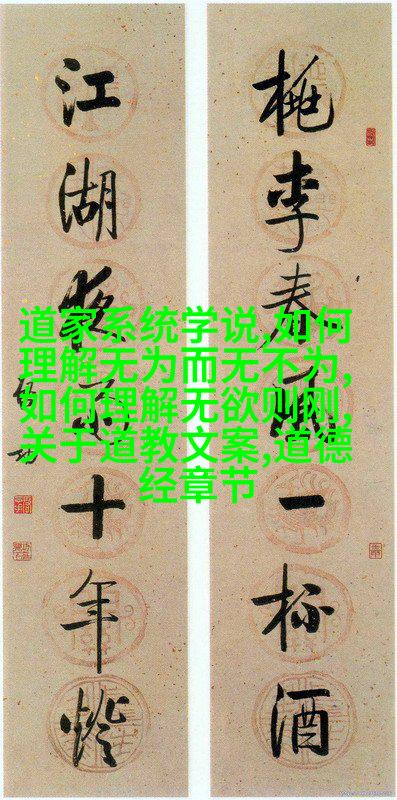 桃李春風一杯酒
江湖夜雨十年燈
道家系统学说,如何
理解无为而无不为,
如何理解无欲则刚,
关于道教文案,道德
经章节